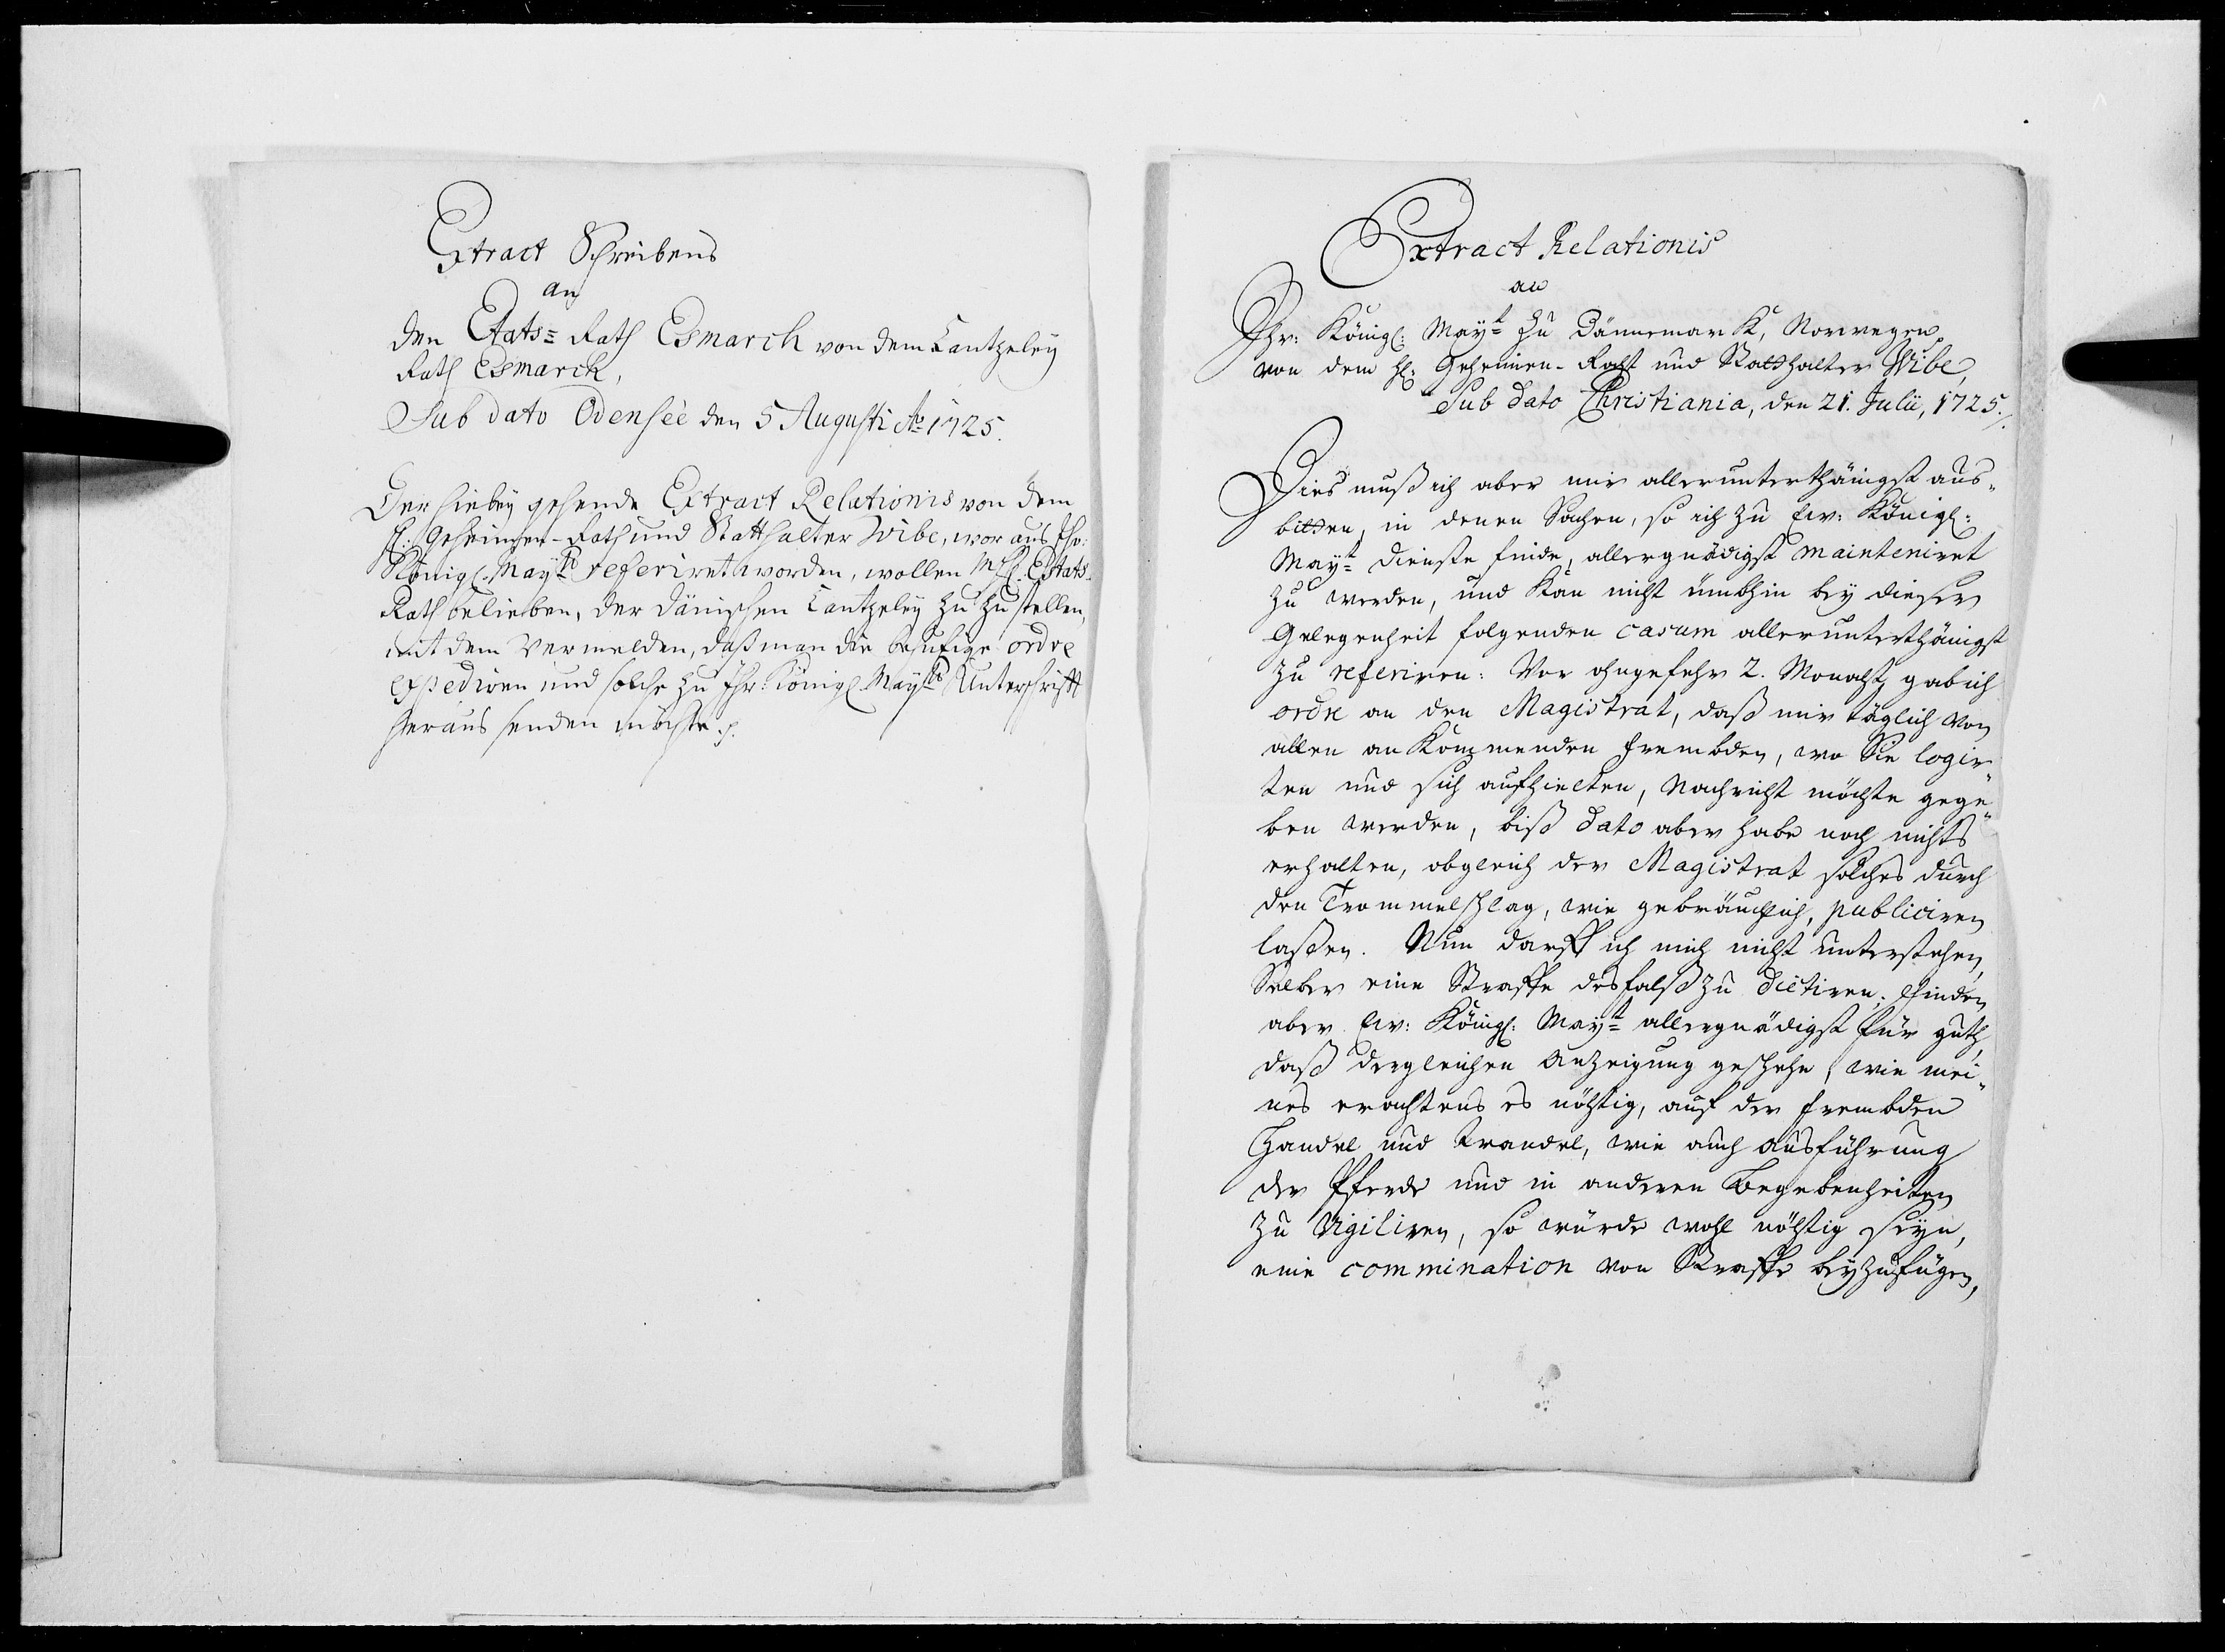 Extract Schreibens
an
den Etats= Rath Esmarch von dem Cantzeley
Rath Esmarck,
Sub dato Odensèe den 5 Augusti Ao 1725.
Der hiebey gehende Extract Relationis von dem
H: Geheimen-Rath und Statthalter Wibe, wor aus Ihr:
Königl. Mayst referiret worden, wollen MHH. Etats-
Rath belieben, der Dänischen Cantzeley zu zu stellen,
mit dem Vermelden, daß man die behufige ordre
expediren und solche zu Ihr: Königl. Mayst Unterschrifft
heraus senden möchte.
Extract Relationis
an
Ihr: Königl: Mayt zu Dännemarck, Norwegen,
von dem H: Geheimen-Raht und Stathhalter Wibe,
Sub dato Christiania, den 21. Julii, 1725./.
Dies muß ich aber mir allerunterthänigst aus„
bitten, in denen Sachen, so ich zu Ew: Königl:
Mayt Dienste finde, allergnädigst mainteniret
zu werden, und Kan nicht umbhin bey dieser
Gelegenheit folgenden casum allerunterthänigst
zu referiren: Vor ohngefehr 2. Monaht, gab ich
ordre an den Magistrat, daß mir täglich von
allen an Kommenden frembden, wo Sie logir„
ten und sich aufhielten, Nachricht möchte gege„
ben werden, biß dato aber habe noch nichts
erhalten, obgleich der Magistrat solches durch
den Trommelschlag, wie gebräuchlich, publiciren
laßen. Nun darff ich mich nicht unterstehen,
Selber eine Straffe desfalß zu dictiren; finden
aber Ew: Königl: Mayt allergnädigst für guth,
daß dergleichen Anzeigung geschehe, wie mei„
nes erachtens es nöhtig, auf der frembden
Handel und Wandel, wie auch Ausführung
der Pferde und in anderen Begebenheiten
zu vigiliren, so würde wohl nöhtig seyn,
eine commination von Straffe beyzufügen,